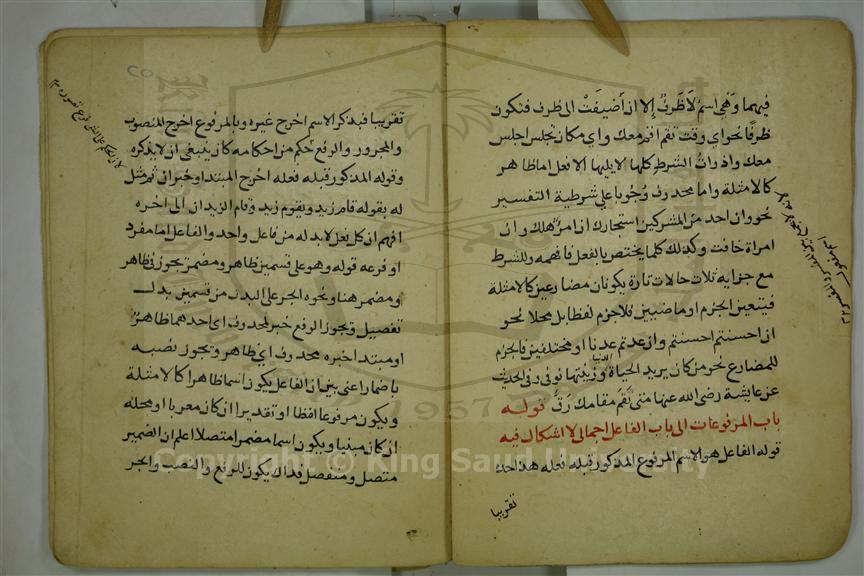 فيهما وهي اسم لا ظرف إلا ان أضيفت الى ظرف فتكون
ظرفا نحو اي وقت تقم اقم معك واي مكان تجلس اجلس
معك وادوات الشرط كلها لا يليها الا فعل اما ظاهر
كالامثلة واما محذوف وجوبا على شرطية التفسير
نحو وان احد من المشركين استجارك ان امرؤ هلك وان
امراة خافت وكذلك كلما يختص بالفعل فافهمه وللشرط
مع جزايه ثلاث حالات تارة يكونان مضارعين كالامثلة
فيتعين الجزم او ماضيين فلا جزم لفظا بل محلا نحو
ان احسنتم احسنتم وان عدتم عدنا او مختلفين فالجزم
للمضارع نحو من كان يريد الحياة الدنيا وزينتها نوفي وفي الحديث
عن عايشة رضي الله عنها متى تقم مقامك رق قوله
باب المرفوعات الى باب الفاعل اجمالي لا اشكال فيه
قوله الفاعل هو الاسم المرفوع المذكور قبله فعله هذا حد
تقريبا
٢٥
تقريبا فبذكر الاسم اخرج غيره وبالمرفوع اخرج المنصوب
والمجرور والرفع حكم من احكامه كان ينبغي ان لا يذكره
وقوله المذكور قبله فعله اخرج المبتدا وخبر ان ثم مثل
له بقوله قام زيد ويقوم زيد وقام الزيدان الى اخره
افهم ان كل فعل لابد له من فاعل واحد والفاعل اما مفرد
او فرعه قوله وهو على قسمين ظاهر ومضمر تجوز في ظاهر
ومضمر هنا ونحوه الجر على البدل من قسمين بدل
تفصيل وتجوز الرفع خبر لمحذوف اي احدهما ظاهر
او مبتدا خبره محذوف اي ظاهر وتجوز نصبه
باضمار اعني بين ان الفاعل يكون اسما ظاهرا كالامثلة
ويكون مرفوعا لفظا او تقديرا ان كان معربا او محله
ان كان مبنيا ويكون اسما مضمرا متصلا اعلم ان الضمير
متصل ومنفصل فذاك يكون للرفع والنصب والجر
Copyright © King Saud University
1957